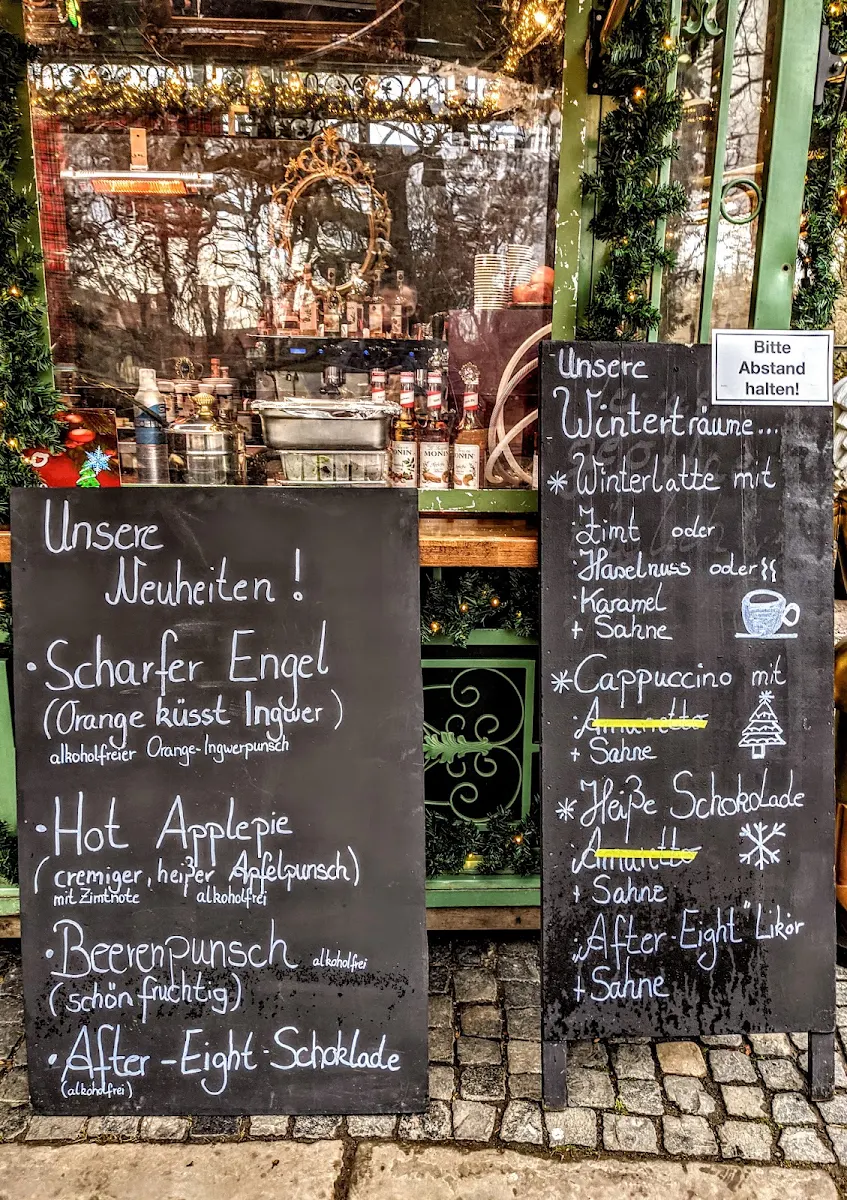 Unsere
Neuheiten !
• Scharfer Engel
(Orange küsst Ingwer )
alkoholfreier Orange-Ingwerpunsch
• Hot Applepie
( cremiger, heißer Apfelpunsch)
mit Zimtnote alkoholfrei
• Beerenpunsch alkoholfrei
(schön fruchtig)
• After-Eight-Schoklade
(alkoholfrei)
Bitte
Abstand
halten!
Unsere
Winterträume...
* Winterlatte mit
· Zimt oder
· Haselnuss oder
· Karamel
+ Sahne
* Cappuccino mit
· Amaretto
+ Sahne
* Heiße Schokolade
· Amaretto
+ Sahne
„After-Eight" Likör
+ Sahne
MONIN
MONIN
MONIN